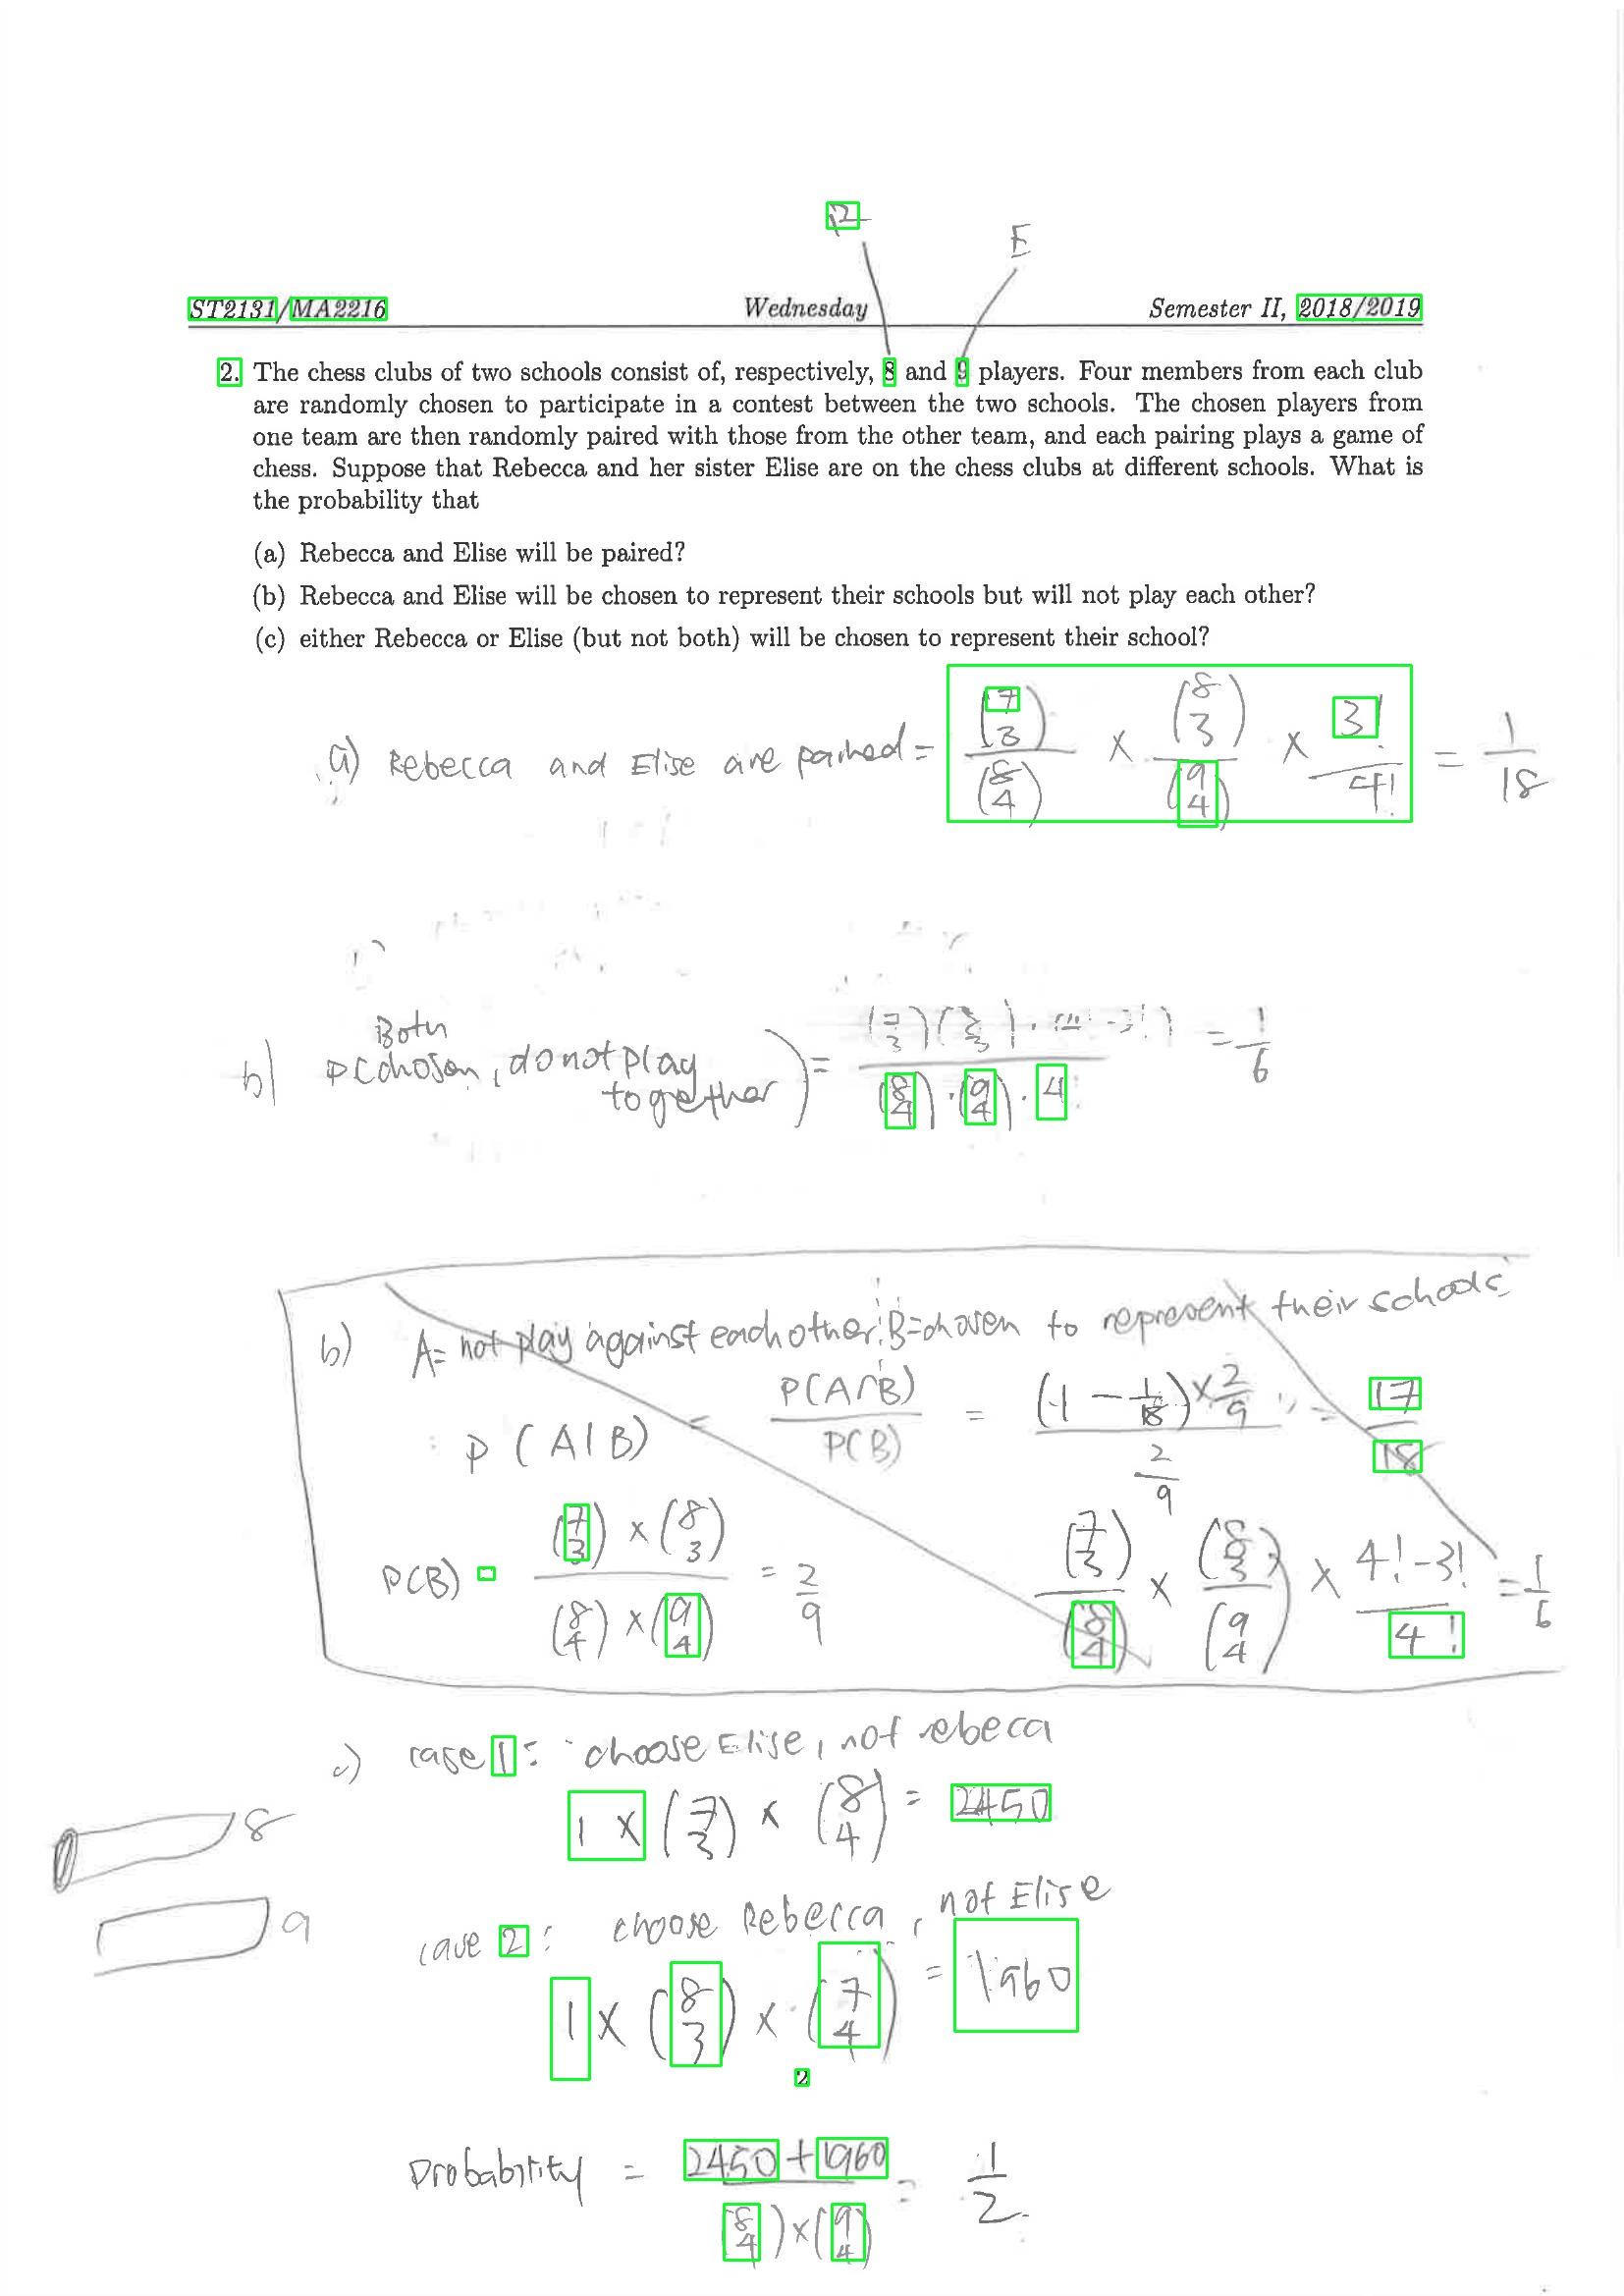 R
E
ST2131/MA2216 Wednesday Semester II, 2018/2019
2. The chess clubs of two schools consist of, respectively, 8 and 9 players. Four members from each club
are randomly chosen to participate in a contest between the two schools. The chosen players from
one team are then randomly paired with those from the other team, and each pairing plays a game of
chess. Suppose that Rebecca and her sister Elise are on the chess clubs at different schools. What is
the probability that
(a) Rebecca and Elise will be paired?
(b) Rebecca and Elise will be chosen to represent their schools but will not play each other?
(c) either Rebecca or Elise (but not both) will be chosen to represent their school?
a) Rebecca and Elise are paired = (7 3)/(8 4) × (8 3)/(9 4) × 3!/4! = 1/18
Both
b) P(chosen, do not play together) = (7 3)(8 3)·(4!-3!) / (8 4)·(9 4)·4! = 1/6
b) A= not play against each other. B= chosen to represent their schools
P(A|B) = P(A∩B)/P(B) = (1 - 1/18) × 2/9 / 2/9 = 17/18
P(B) = (7 3) × (8 3) / (8 4) × (9 4) = 2/9
(7 3)/(8 4) × (8 3)/(9 4) × 4!-3!/4! = 1/6
c) case 1: choose Elise, not rebeca
1 × (7 3) × (8 4) = 2450
8
case 2: choose Rebecca, not Elise
9
1 × (8 3) × (7 4) = 1960
2
Probability = 2450+1960 / (8 4)×(9 4) = 1/2